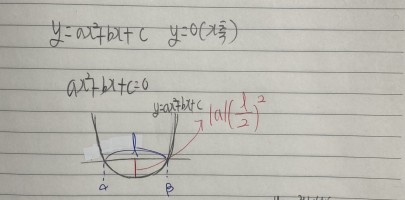 y=ax²+bx+c y=0(x축)
ax²+bx+c=0
y=ax²+bx+c
|a|(l/2)²
l
α β